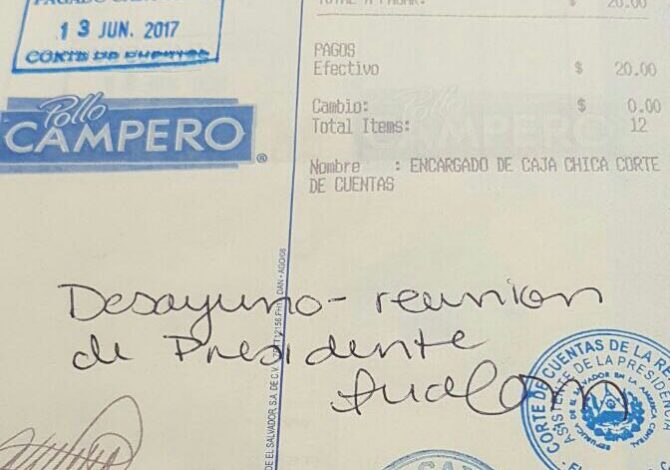 13 JUN. 2017
CORTE DE CUENTAS
Pollo
CAMPERO®
TOTAL A PAGAR: $ 20.00
PAGOS
Efectivo $ 20.00
Cambio: $ 0.00
Total Items: 12
Nombre : ENCARGADO DE CAJA CHICA CORTE
DE CUENTAS
Desayuno - reunion
de Presidente
DE EL SALVADOR, S.A. DE C.V.
CORTE DE CUENTAS DE LA RE
ASISTENTE DE LA PRESIDENCIA
REPUBLICA DE EL SALVADOR EN LA AMERICA CENTRAL